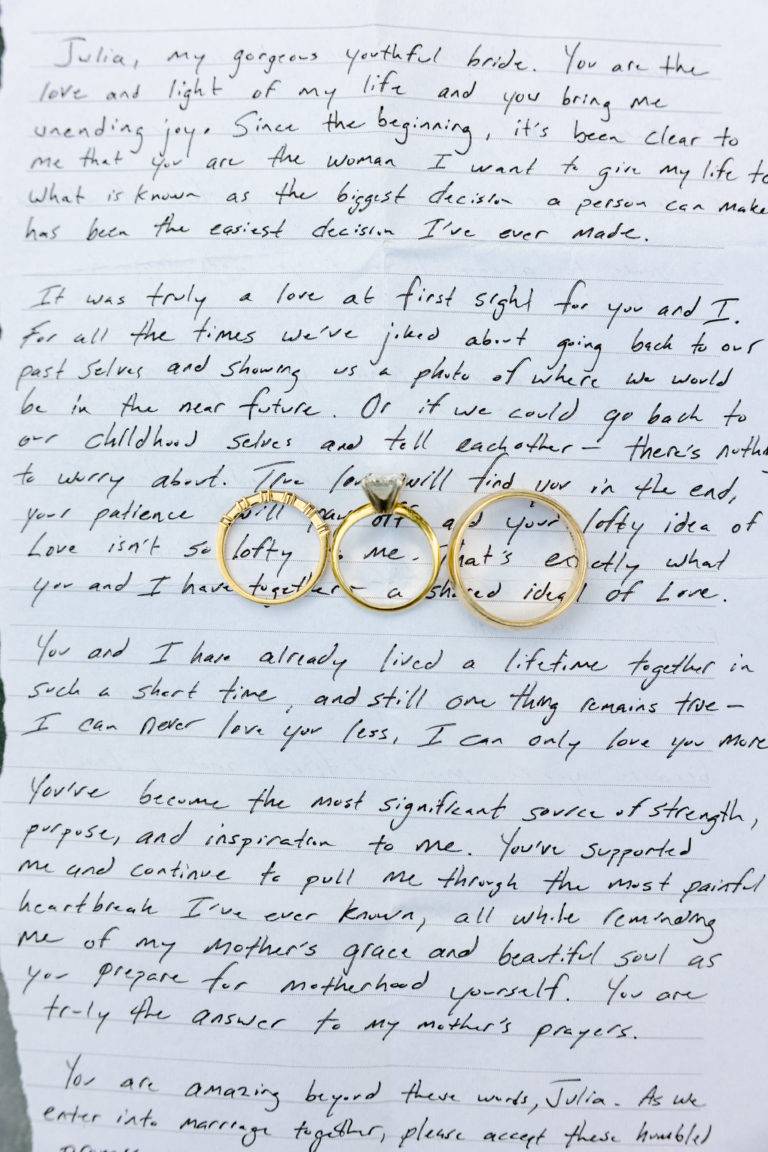 Julia, my gorgeous youthful bride. You are the
love and light of my life and you bring me
unending joy. Since the beginning, it's been clear to
me that you are the woman I want to give my life to
What is known as the biggest decision a person can make
has been the easiest decision I've ever made.
It was truly a love at first sight for you and I.
For all the times we've joked about going back to our
past selves and showing us a photo of where we would
be in the near future. Or if we could go back to
our childhood selves and tell eachother – there's noth
to worry about. True love will find you in the end,
your patience will pay off and your lofty idea of
Love isn't so lofty me. that's exactly what
you and I have together – a shared ideal of Love.
You and I have already lived a lifetime together in
such a short time, and still one thing remains true –
I can never love you less, I can only love you more
You've become the most significant source of strength,
purpose, and inspiration to me. You've supported
me and continue to pull me through the most painful
heartbreak I've ever known, all while reminding
me of my mother's grace and beautiful soul as
you prepare for motherhood yourself. You are
truly the answer to my mother's prayers.
You are amazing beyond these words, Julia. As we
enter into marriage together, please accept these humbled